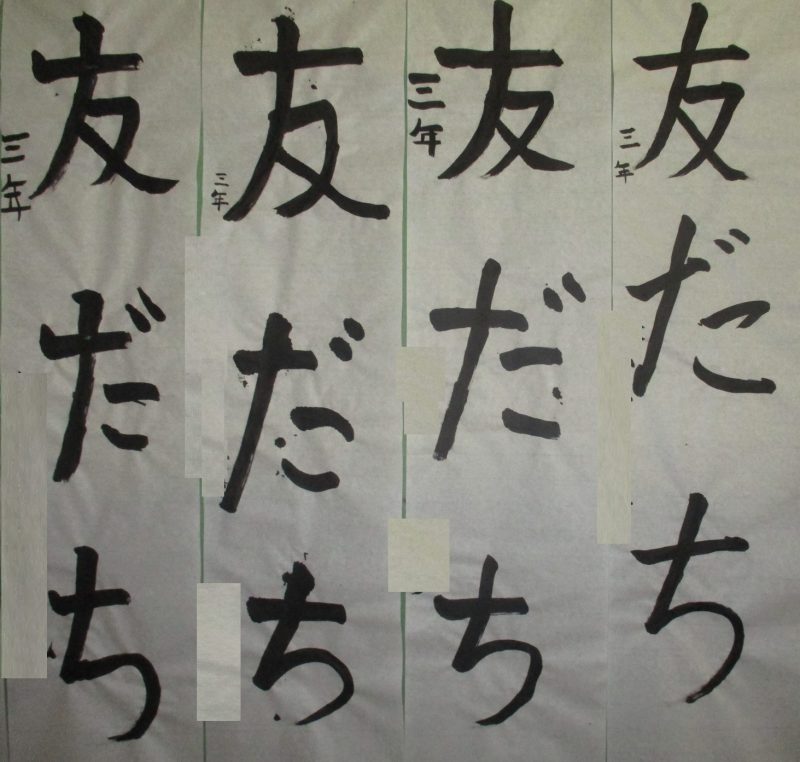 友だち
三年
友だち
三年
友だち
三年
友だち
三年